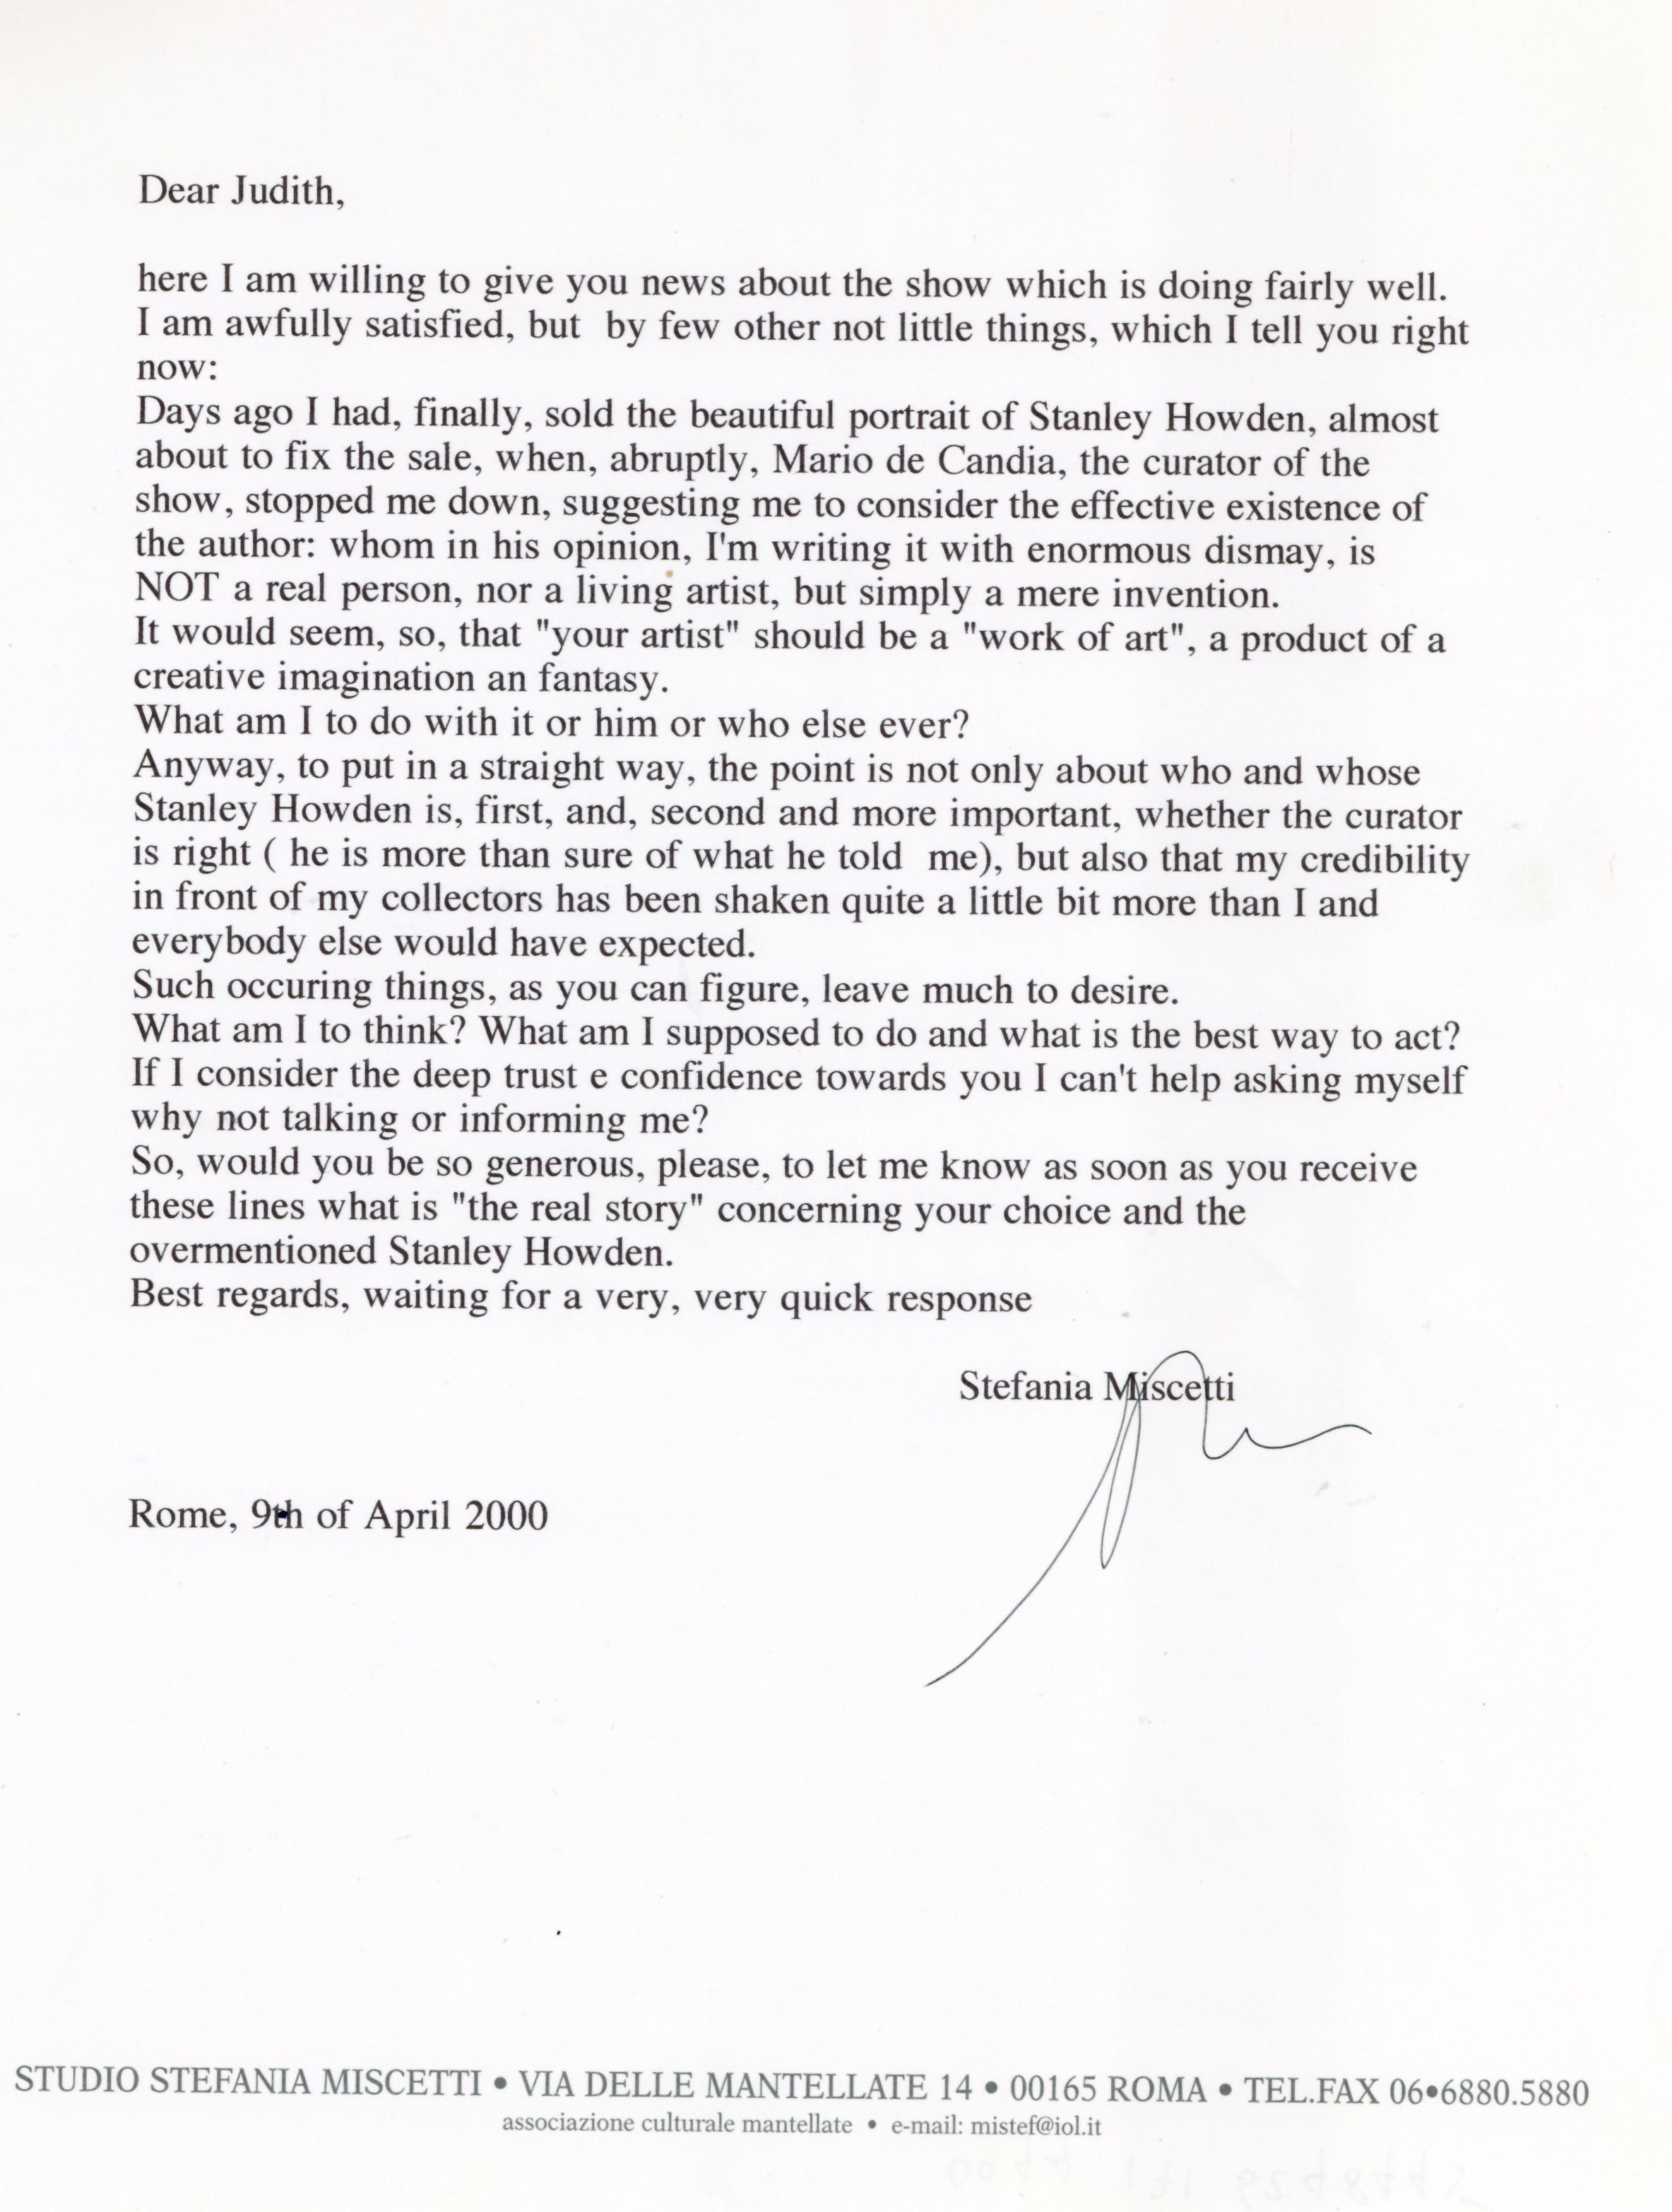 Dear Judith,
here I am willing to give you news about the show which is doing fairly well.
I am awfully satisfied, but  by few other not little things, which I tell you right
now:
Days ago I had, finally, sold the beautiful portrait of Stanley Howden, almost
about to fix the sale, when, abruptly, Mario de Candia, the curator of the
show, stopped me down, suggesting me to consider the effective existence of
the author: whom in his opinion, I'm writing it with enormous dismay, is
NOT a real person, nor a living artist, but simply a mere invention.
It would seem, so, that "your artist" should be a "work of art", a product of a
creative imagination an fantasy.
What am I to do with it or him or who else ever?
Anyway, to put in a straight way, the point is not only about who and whose
Stanley Howden is, first, and, second and more important, whether the curator
is right ( he is more than sure of what he told  me), but also that my credibility
in front of my collectors has been shaken quite a little bit more than I and
everybody else would have expected.
Such occuring things, as you can figure, leave much to desire.
What am I to think? What am I supposed to do and what is the best way to act?
If I consider the deep trust e confidence towards you I can't help asking myself
why not talking or informing me?
So, would you be so generous, please, to let me know as soon as you receive
these lines what is "the real story" concerning your choice and the
overmentioned Stanley Howden.
Best regards, waiting for a very, very quick response
Stefania Miscetti
Rome, 9th of April 2000
STUDIO STEFANIA MISCETTI • VIA DELLE MANTELLATE 14 • 00165 ROMA • TEL.FAX 06•6880.5880
associazione culturale mantellate • e-mail: mistef@iol.it